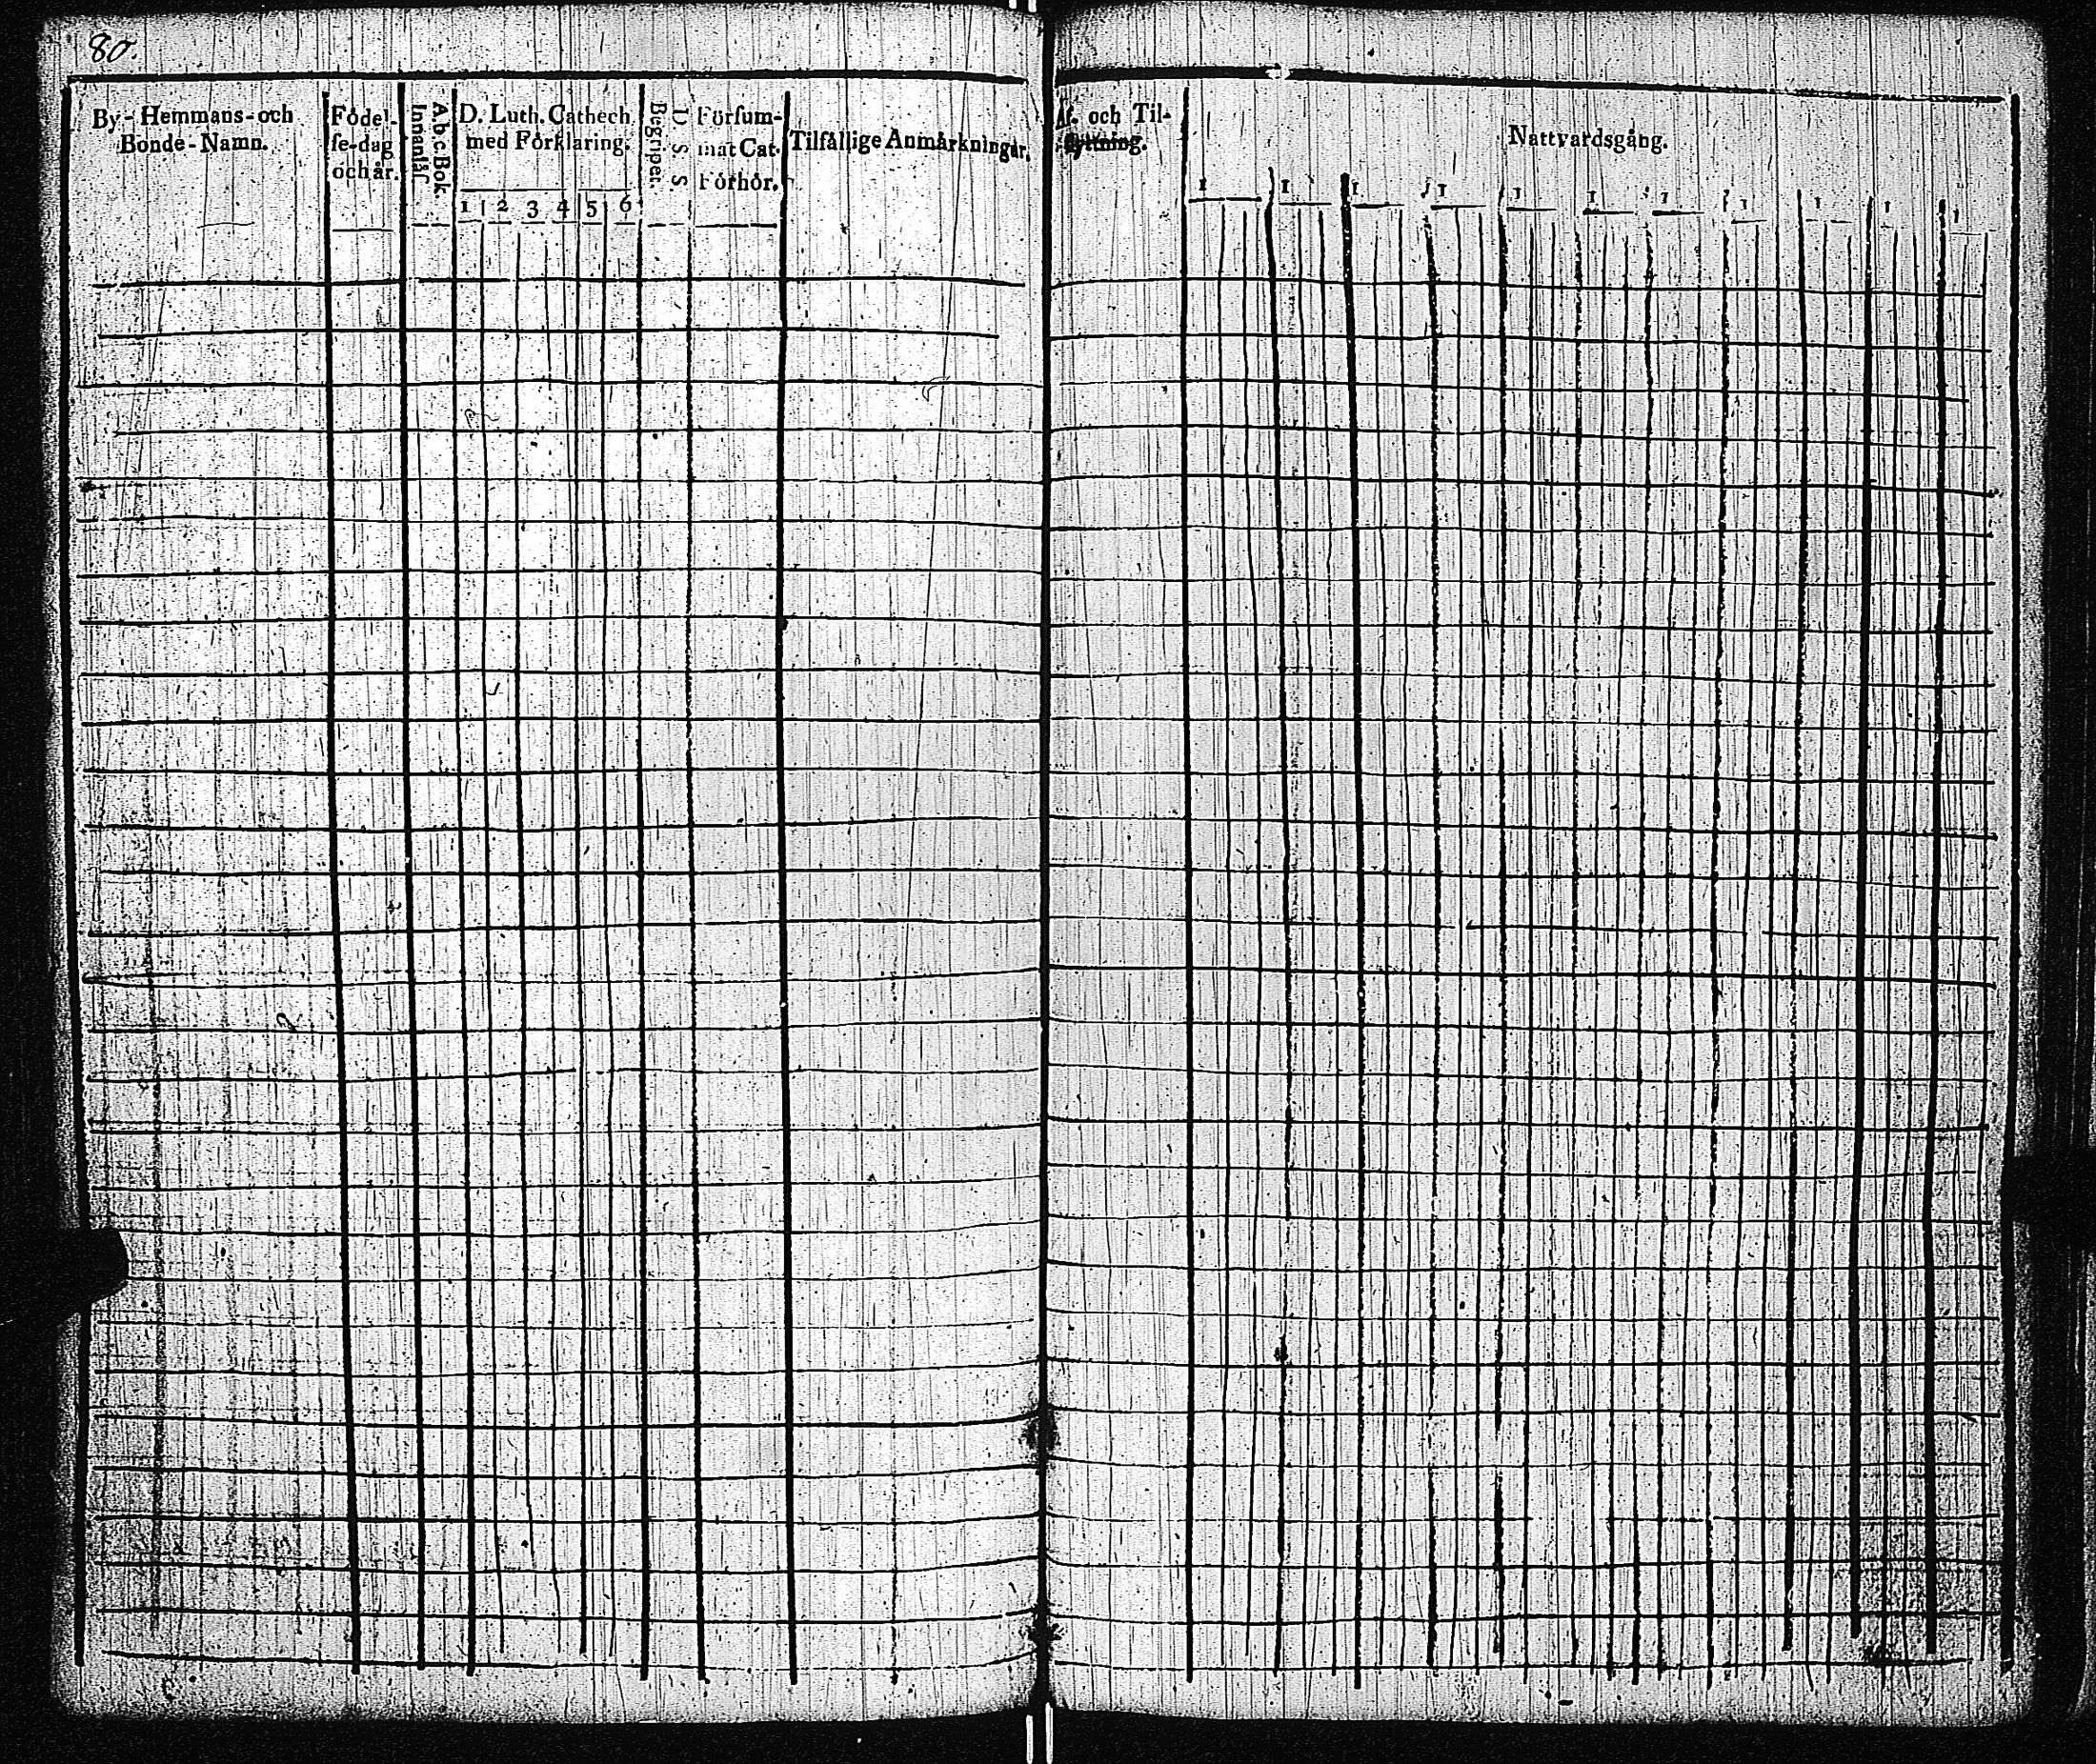 80.
By- Hemmans- och
Bonde- Namn.
Födel-
se-dag
och år.
A.b.c Bok.
Innanläs.
D. Luth. Cathech.
med Förklaring.
1 2 3 4 5 6
D. S. S.
Begriper.
Försum-
mat Cat.
Förhör.
Tilfällige Anmärkningar.
Af- och Til-
flyttning.
Nattvardsgång.
1 1 1 1 1 1 1 1 1 1 1